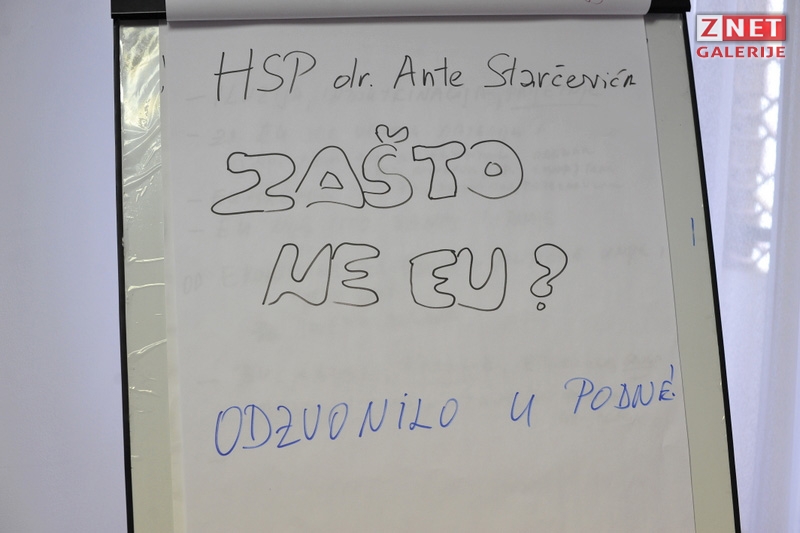 ZNET
GALERIJE
HSP dr. Ante Starčevića
ZAŠTO
NE EU?
ODZVONILO U PODNE!